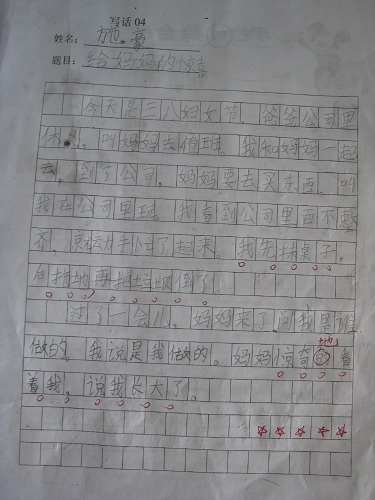 写话 04
姓名: 施豪
题目: 给妈妈的惊喜
今天是三八妇女节。爸爸公司里
休息。叫妈妈去值班。我和妈妈一起
去。到了公司。妈妈要去买东西。叫
我在公司里玩。我看到公司里面不整
齐,便动手忙了起来。我先擦桌子。
再把垃圾倒了。
过了一会儿。妈妈来了问我是谁
做的。我说是我做的。妈妈惊奇地看
着我,说我长大了。